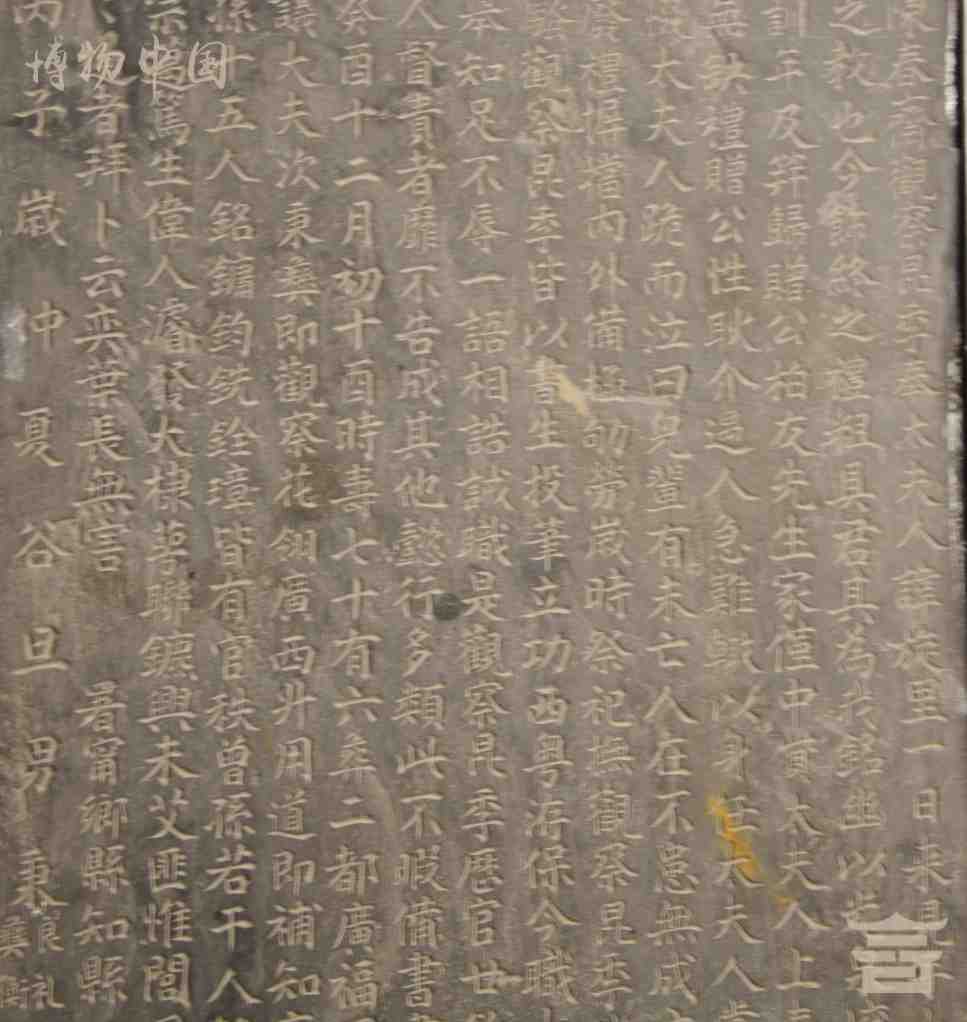 奏齊觀察昆季奉太夫人諱旌里一日來
之救也今飾終之禮粗具君其為我銘幽以
訓年及笄歸贈公柏友先生家僅中貲太夫人上
無缺禮贈公性耿介遇人急難輒以身任太夫人
太夫人跪而泣曰兒輩有未亡人在不患無成
禮悍墻內外備極劬勞歲時祭祀撫觀祭昆季
觀祭昆季皆以書生投筆立功西粵海保今職
本知足不辱一語相誥誡職是觀察昆季歷官廿
人督責者靡不告成其他懿行多類此不暇備書
癸酉十二月初十酉時壽七十有六葬二都廣福
議大夫次秉彝即觀察花翎廣西升用道即補知
孫十五人銘鏞鈞銑銓璋皆有官秩曾孫若干人
篤生偉人濬發大棣萼聯鑣興未艾匪惟閭
者拜卜云奕葉長無害 署甯鄉縣知縣
丙子歲仲夏谷旦男秉
彝
禮
博物中国